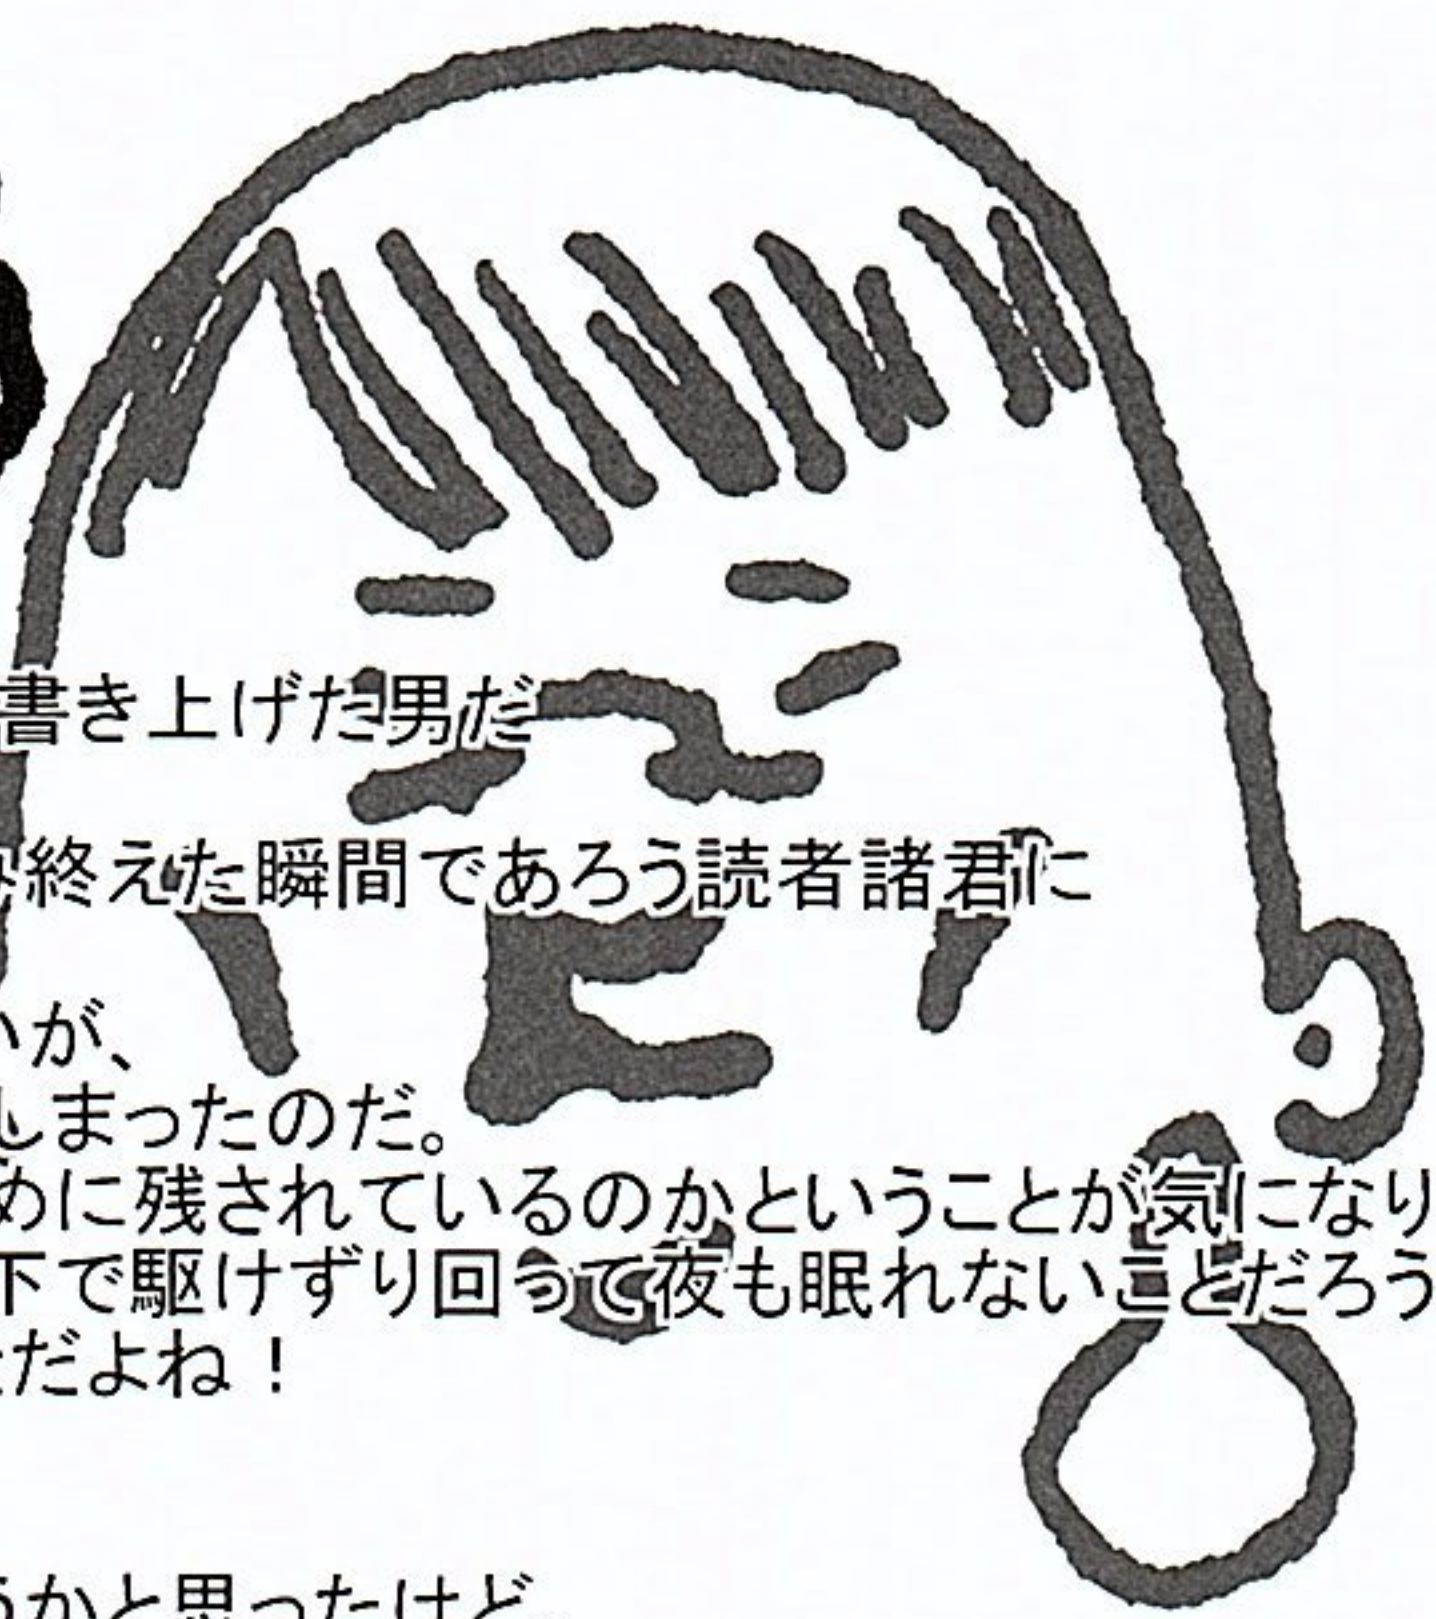 書き上げた男だ
終えた瞬間であろう読者諸君に
いが、
しまったのだ。
めに残されているのかということが気になり
下で駆けずり回って夜も眠れないことだろう
だよね！
うかと思ったけど、